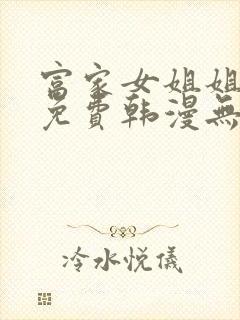 富家女姐姐
免費韩漫無
冷水悦儀